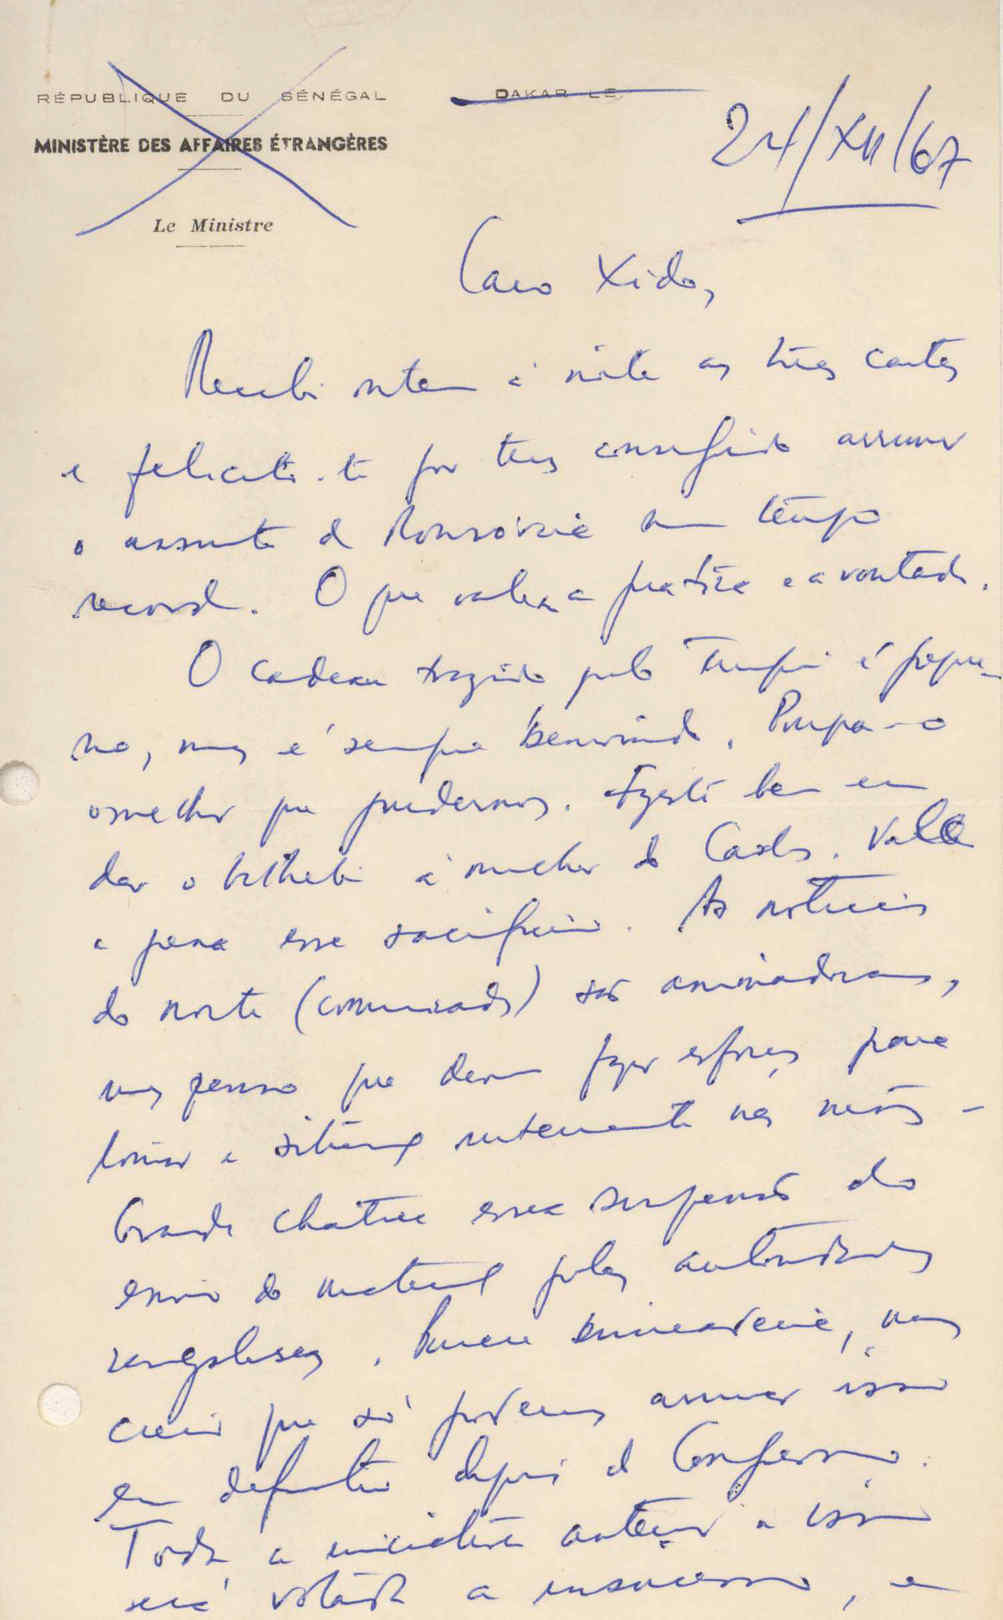 RÉPUBLIQUE DU SÉNÉGAL
DAKAR LE
MINISTÈRE DES AFFAIRES ÉTRANGÈRES
24/XII/67
Le Ministre
Caro Xido,
Recebi ontem à noite as três cartas
e felicito-te por teres conseguido arrumar
o assunto de Monróvia num tempo
record. O que valeu a prática e a vontade.
O cadeau trazido pelo é peque-
no, mas é sempre benvindo. Poupa-o
o melhor que pudermos. Fizeste bem em
dar o bilhete à mulher do Carlos. Valeu
a pena esse sacrifício. As notícias
do norte (comunicado) são animadoras,
mas penso que devem fazer esforços para
tomar a iniciativa nas mãos -
Grande chatice essa suspensão do
envio do material pelas autoridades
congolesas. , mas
creio que só podemos arrumar isso
em definitivo depois de
Toda a iniciativa anterior a isso
será votada a insucesso, e